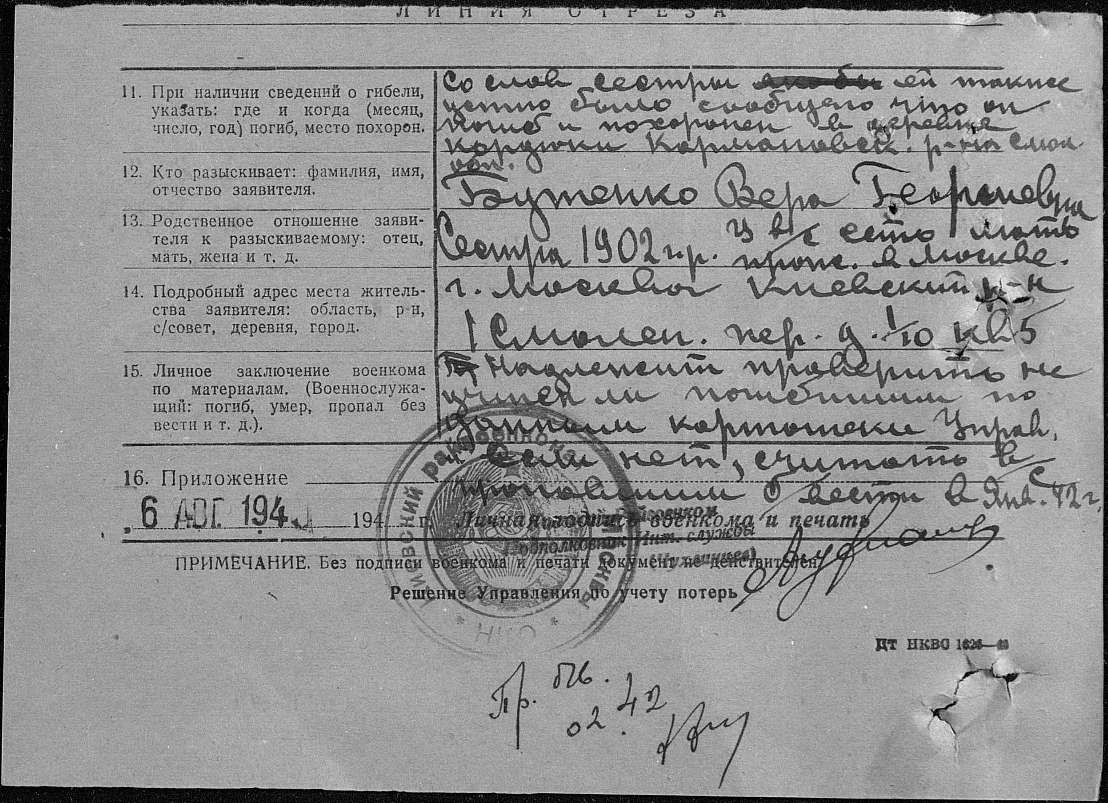 ЛИНИЯ ОТРЕЗА
11. При наличии сведений о гибели,
указать: где и когда (месяц,
число, год) погиб, место похорон.
Со слов сестры ей также
устно было сообщено что он
погиб и похоронен в деревне
Кордюки Кармановск. р-на Смол
обл.
12. Кто разыскивает: фамилия, имя,
отчество заявителя.
Бутенко Вера Георгиевна
13. Родственное отношение заяви-
теля к разыскиваемому: отец,
мать, жена и т. д.
Сестра 1902 г.р. У есть мать
прож. в Москве.
14. Подробный адрес места житель-
ства заявителя: область, р-н,
с/совет, деревня, город.
г. Москва Киевский р-н
1 Смолен. пер. д. 1/10 кв 5
15. Личное заключение военкома
по материалам. (Военнослужа-
щий: погиб, умер, пропал без
вести и т. д.).
Надлежит проверить не
учтен ли погибшим по
данным картотеки Управ.
Если нет, считать
пропавшим б/вести в Янв. 42 г.
16. Приложение
6 АВГ 194
194 г. Личная подпись военкома и печать
Подполковник Инт. службы
ПРИМЕЧАНИЕ. Без подписи военкома и печати документ не действителен.
Решение Управления по учету потерь
Киевский райвоенкомат Москвы
* НКО *
ЦТ НКВО
Пр. б/в.
02. 42